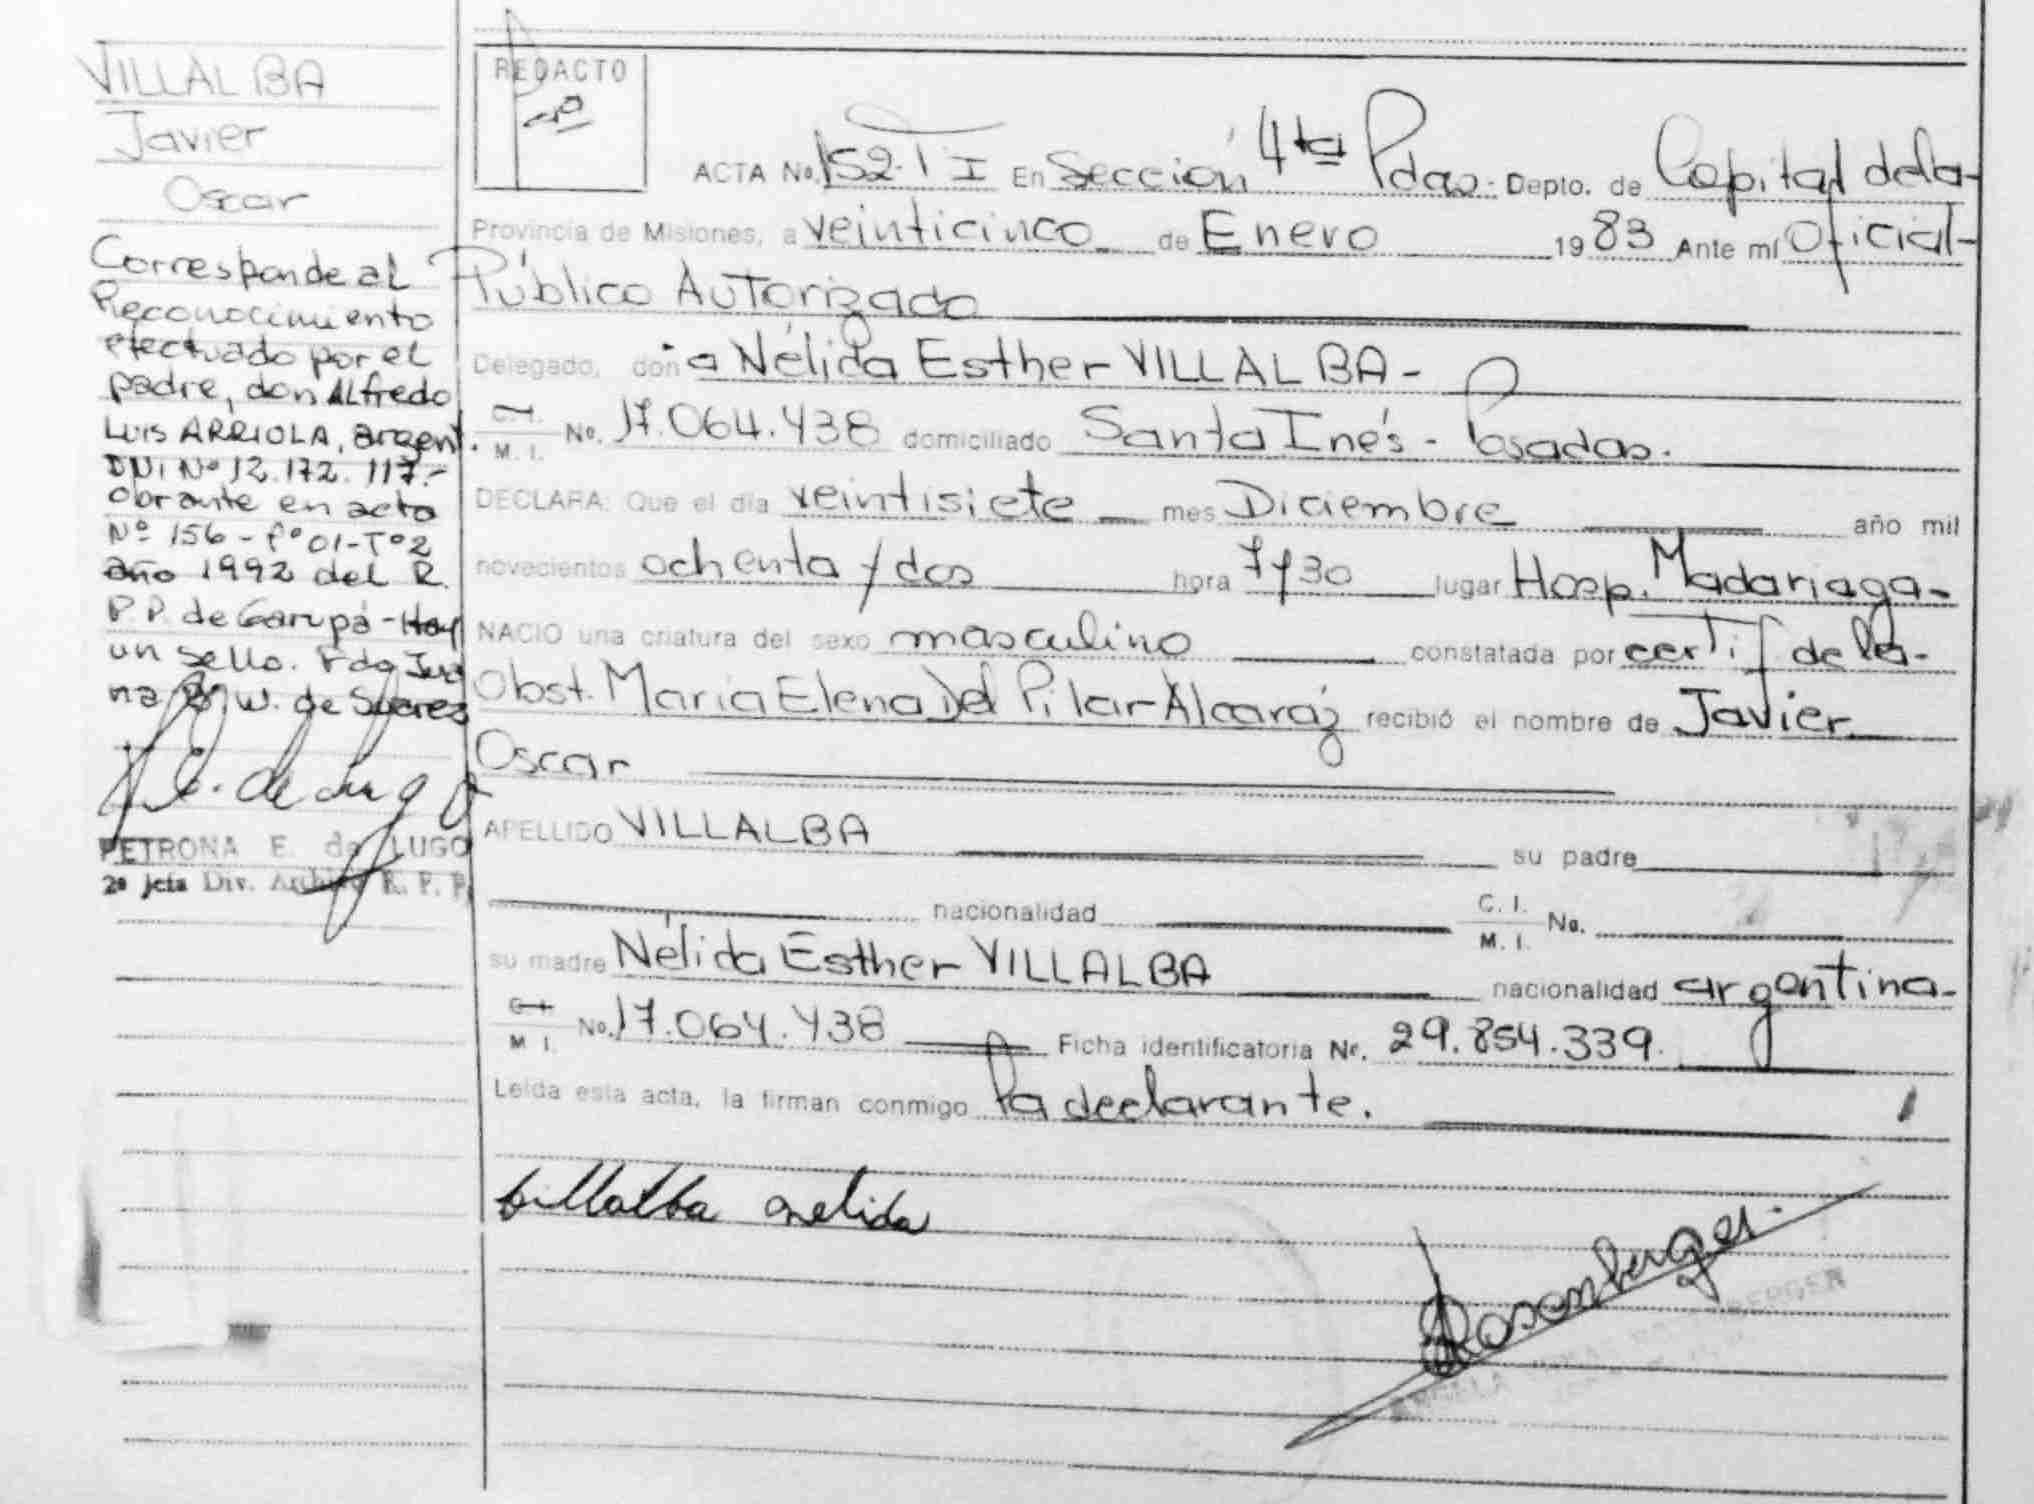 VILLALBA
Javier
Oscar
Corresponde al
Reconocimiento
efectuado por el
padre, don ALfredo
LUIS ARRIOLA, argent.
DNI Nº 12.172.117.-
obrante en acta
Nº 156 - Fº 01-Tº2
año 1992 del R.
P.P. de Garupá - Hay
un sello. Fdo Jua
na W. de Suarez
PETRONA E. de LUGO
2ª Jefa Div. Archivo R. P. P.
REDACTO
ACTA No. 152. T I En Sección 4ta Pdas. Depto. de Capital de la-
Provincia de Misiones, a veinticinco de Enero 1983 Ante mí Oficial-
Público Autorizado
Delegado, don a Nélida Esther VILLALBA-
C.I. M. I. No. 17.064.438 domiciliado Santa Inés - Posadas.
DECLARA: Que el día veintisiete mes Diciembre año mil
novecientos ochenta y dos hora 7y30 lugar Hosp. Madariaga-
NACIO una criatura del sexo masculino constatada por certif de la-
Obst. María Elena Del Pilar Alcaráz recibió el nombre de Javier
Oscar
APELLIDO VILLALBA su padre
nacionalidad C. I. M. I. No.
su madre Nélida Esther VILLALBA nacionalidad argentina-
M I. No. 17.064.438 Ficha identificatoria Nr. 29.854.339.
Leída esta acta, la firman conmigo la declarante.
Villalba Nelida
Rosenberger